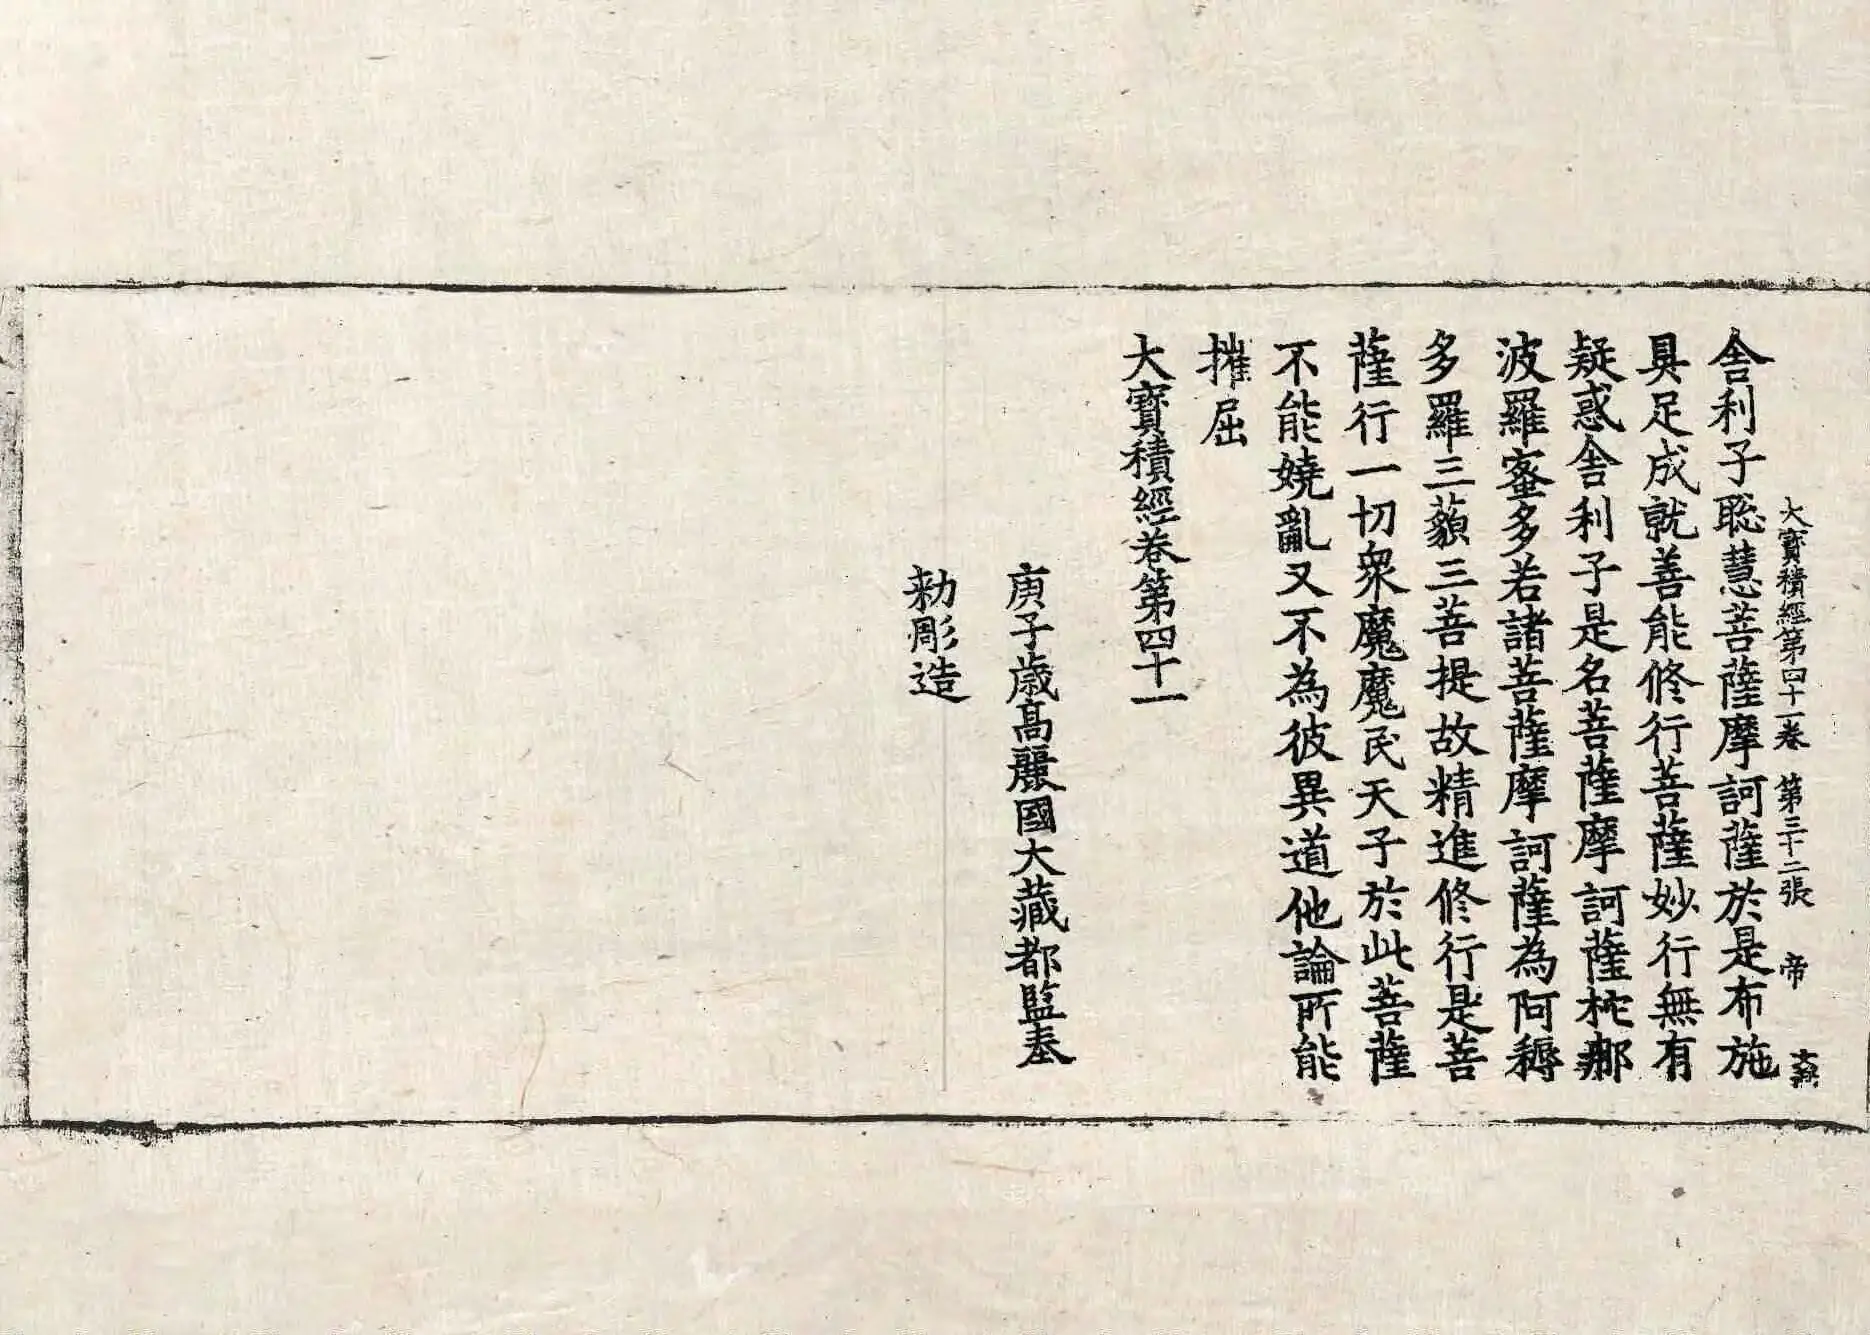 大寶積經第四十一卷 第三十二張 帝
舍利子聡慧菩薩摩訶薩於是布施
具足成就善能修行菩薩妙行無有
疑惑舍利子是名菩薩摩訶薩柁那
波羅蜜多若諸菩薩摩訶薩為阿耨
多羅三藐三菩提故精進修行是菩
薩行一切衆魔魔民天子於此菩薩
不能嬈亂又不為彼異道他論所能
摧屈
大寶積經卷第四十一
庚子歳高麗國大藏都監奉
勅彫造